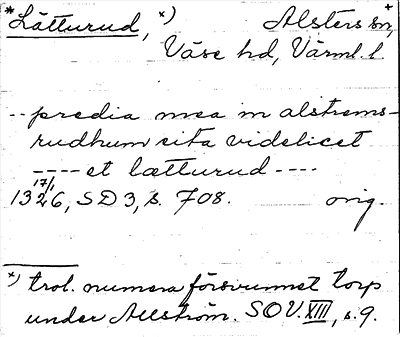 *Lätturud, x) Alsters sn, +
Väse hd, Värml. l
-- predia mea in alstrems-
rudhum sita videlicet
---- et lætturud ----
17/1
1326, SD 3, s. 708. orig.
x) trol. numera försvunnet torp
under Alström. SOV. XIII, s. 9.